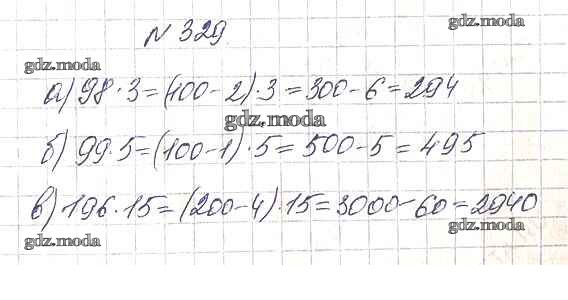 № 329.
gdz.moda
а) 98 · 3 = (100 - 2) · 3 = 300 - 6 = 294
gdz.moda
б) 99 · 5 = (100 - 1) · 5 = 500 - 5 = 495
в) 196 · 15 = (200 - 4) · 15 = 3000 - 60 = 2940
gdz.moda gdz.moda